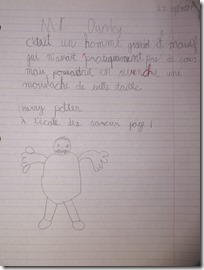 Mr Dursley
c'était un homme grand et massif
qui n'avait pratiquement pas de cou
mais possédait en revanche une
moustache de belle taille.
harry potter
à l'école des sorciers page 1